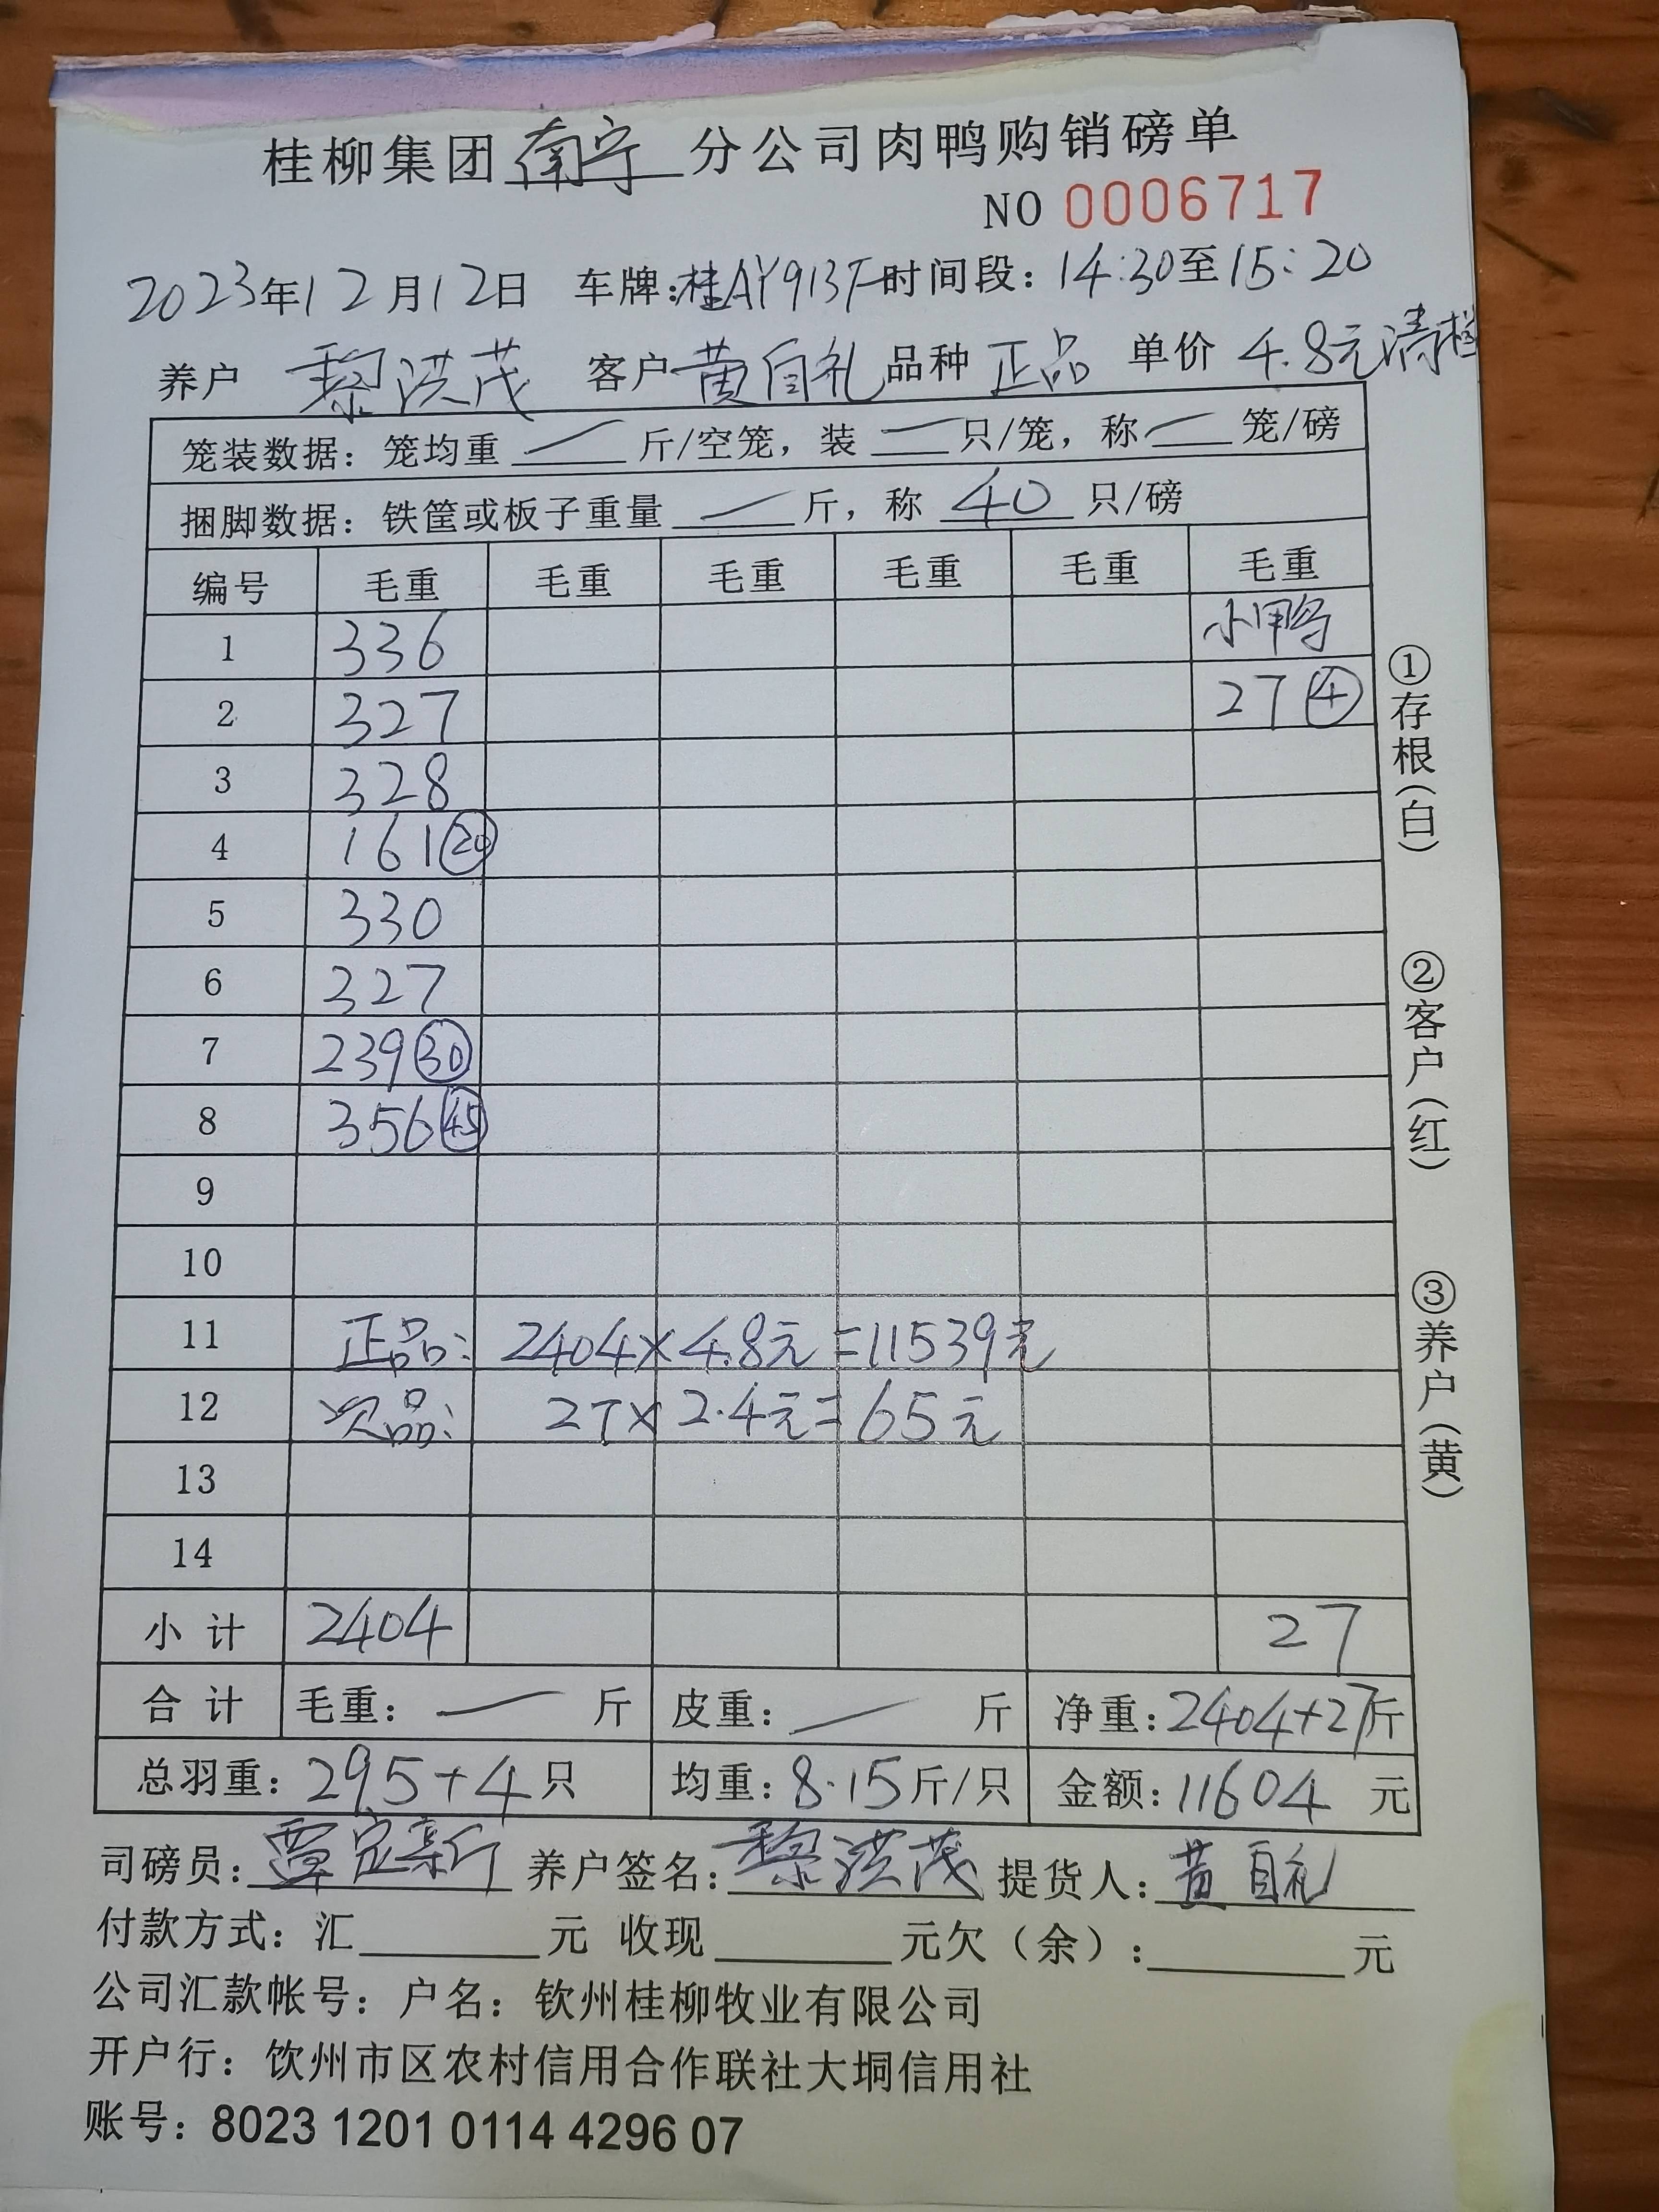 桂柳集团南宁分公司肉鸭购销磅单
NO 0006717
2023年12月12日 车牌:桂AY913F 时间段:14:30至15:20
养户 黎洪茂 客户 黄自礼 品种 正品 单价 4.8元清栏
笼装数据:笼均重 — 斤/空笼,装 — 只/笼,称 — 笼/磅
捆脚数据:铁筐或板子重量 — 斤,称 40 只/磅
编号 毛重 毛重 毛重 毛重 毛重 毛重
1 336 小鸭
2 327 27④
3 328
4 161⑳
5 330
6 327
7 239㉚
8 356㊺
9
10
11 正品: 2404×4.8元=11539元
12 次品: 27×2.4元=65元
13
14
小计 2404 27
合计 毛重: — 斤 皮重: — 斤 净重:2404+27斤
总羽重:295+4只 均重:8.15斤/只 金额:11604 元
司磅员:覃定新 养户签名:黎洪茂 提货人:黄自礼
付款方式:汇______元 收现______元欠(余):______元
公司汇款帐号:户名:钦州桂柳牧业有限公司
开户行:饮州市区农村信用合作联社大垌信用社
账号:8023 1201 0114 4296 07
①存根(白)
②客户(红)
③养户(黄)